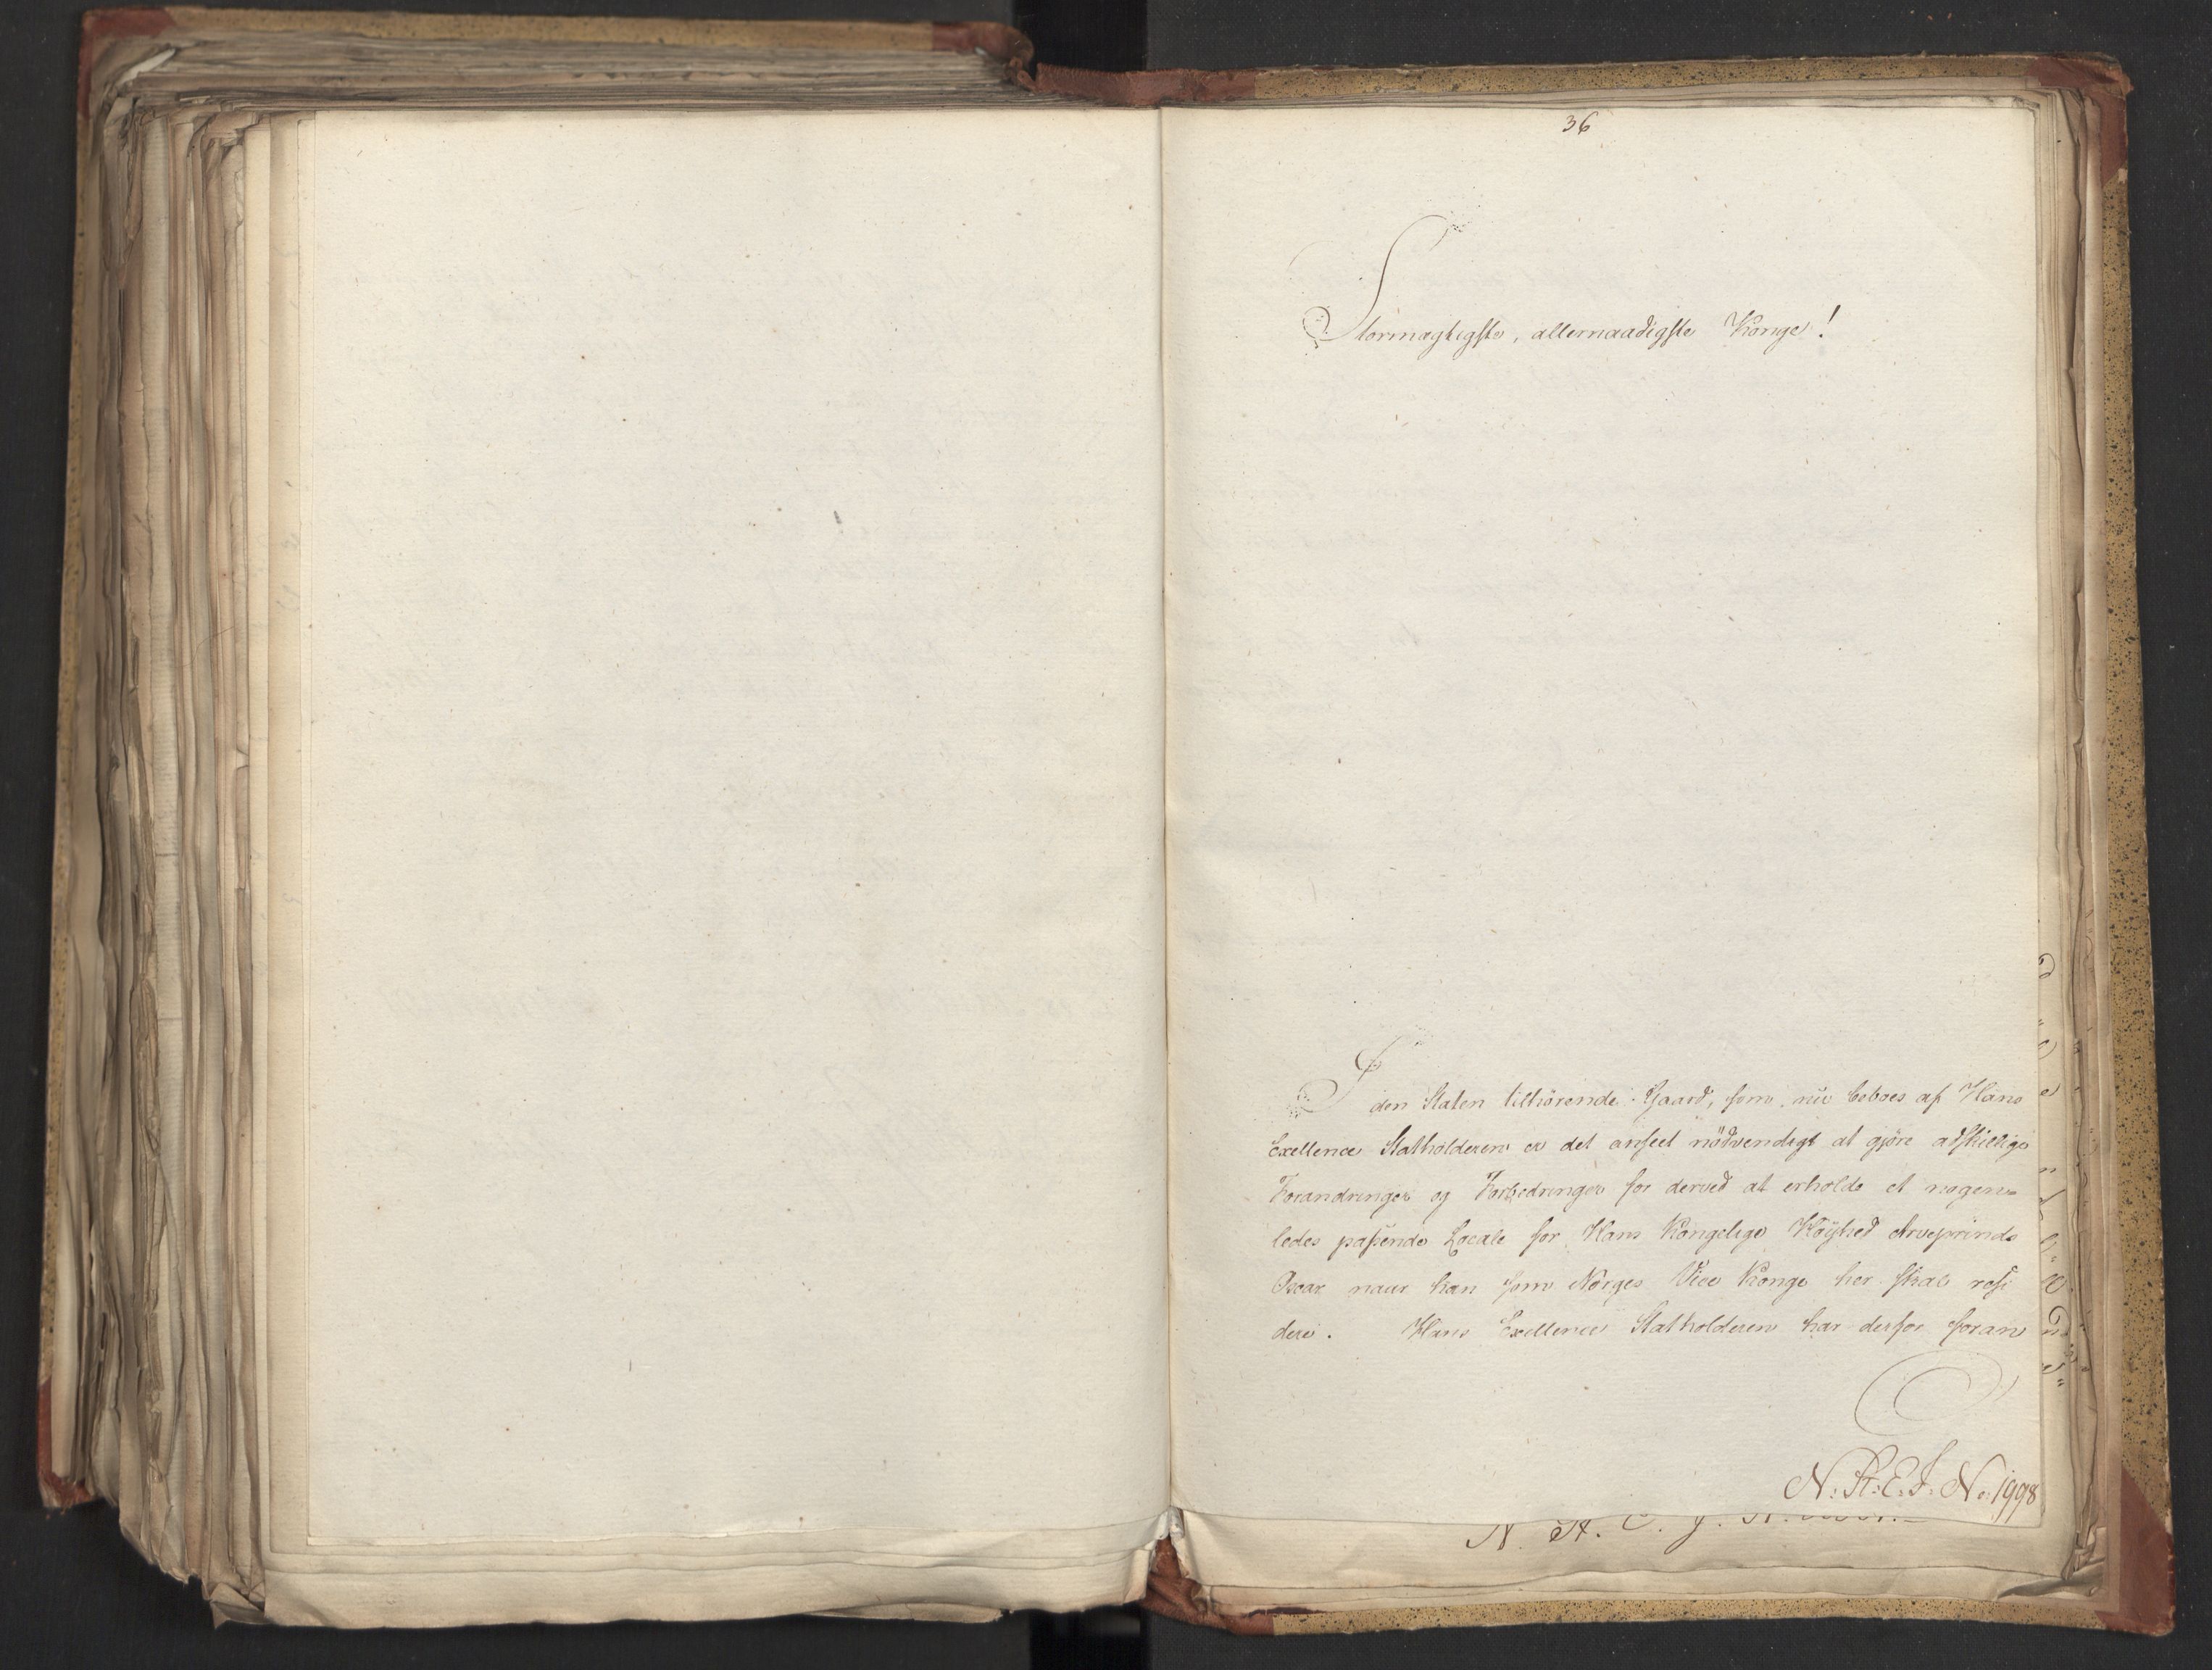 36
Stormægtigste, allernaadigste Konge!
I den Staten tilhørende Gaard, som nu beboes af Hans
Exellence Statholderen er det anseet nødvendigt at gjøre adskillige
Forandringer og Forbedringer for derved at erholde et nogen=
ledes passende Locale for Hans Kongelige Høyhed Arveprinds
Oscar naar han som Norges Vice Konge her skal resi
dere. Hans Exellence Statholderen har derfor foran
N: R: E: J: No 1998